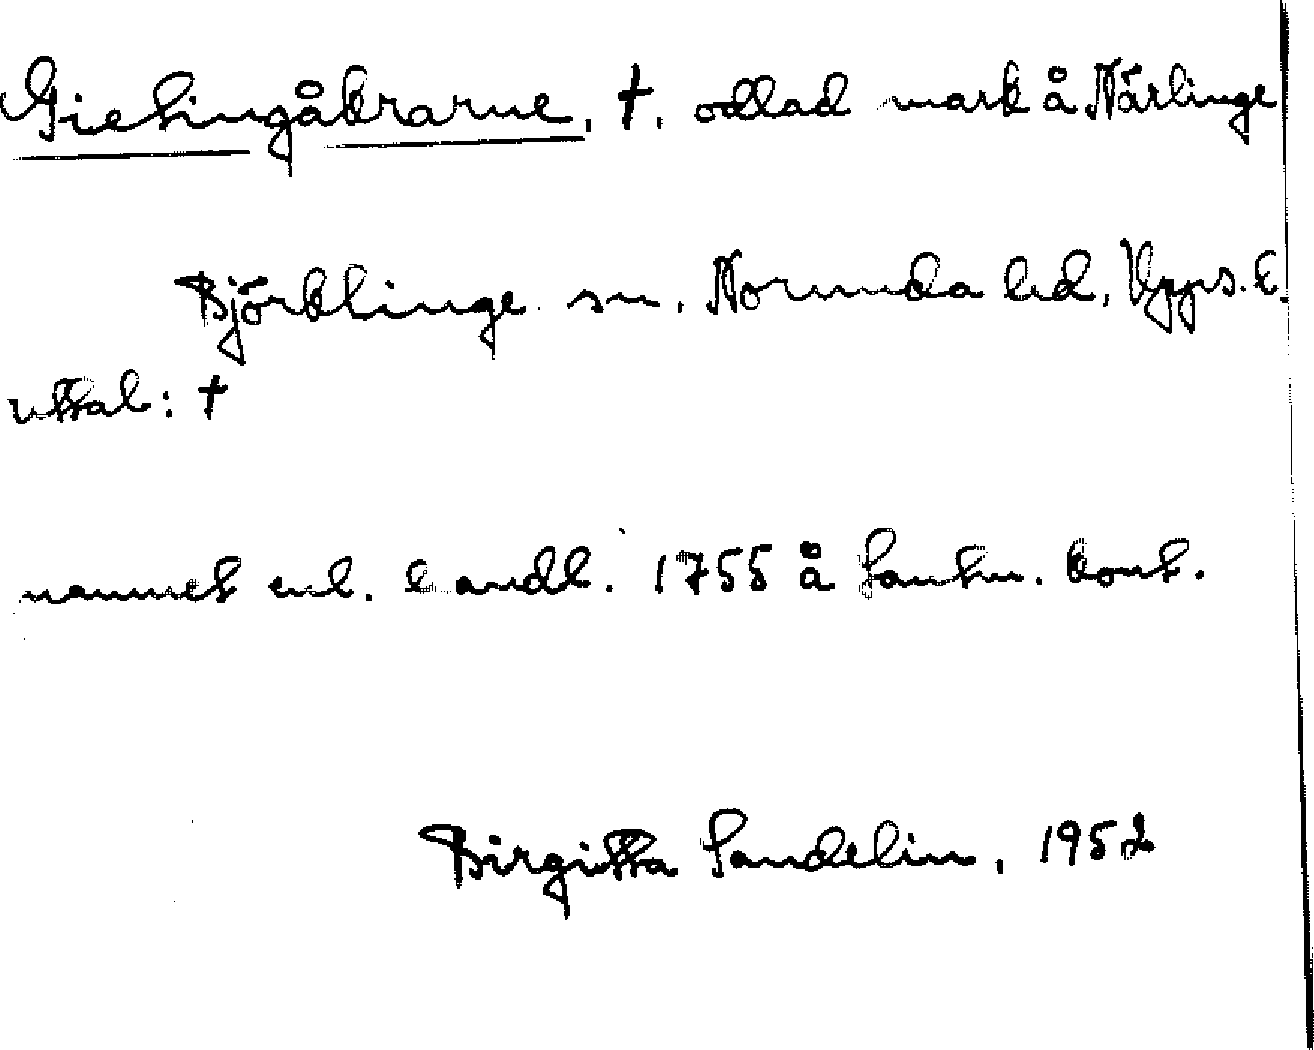 Gietingåkrarne, †, odlad mark å Närlinge
Björklinge sn, Norunda hd, Upps. l.
uttal: †
namnet enl. handl. 1755 å Lantm. kont.
Birgitta Sandelin, 1952